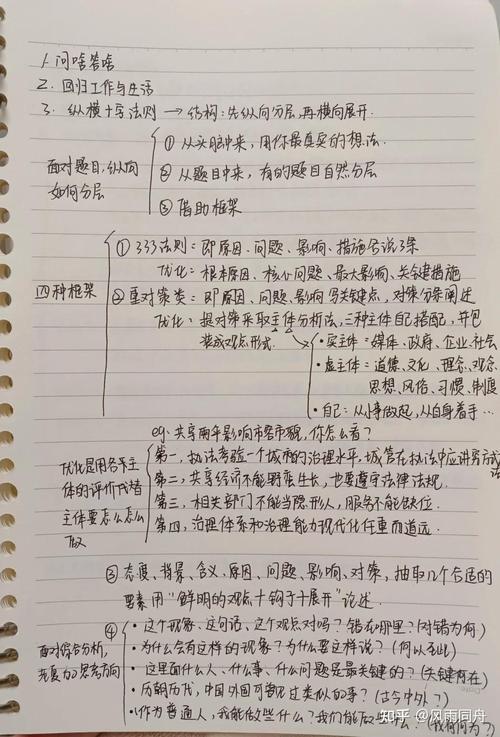 1. 问啥答啥
2. 回归工作与生活
3. 纵横十字法则 → 结构:先纵向分层,再横向展开.
面对题目,纵向如何分层
① 从头脑中来,用你最真实的想法.
② 从题目中来,有的题目自然分层
③ 借助框架
四种框架
① 333法则:即原因、问题、影响、措施各说3条
优化:根本原因、核心问题、最大影响、关键措施
② 重对策类:即原因、问题、影响 写关键点,对策分条阐述
优化:提对策采取主体分析法,三种主体自己搭配,并包
装成观点形式.
· 实主体:媒体、政府、企业、社会
· 虚主体:道德、文化、理念、观念
思想、风俗、习惯、制度
· 自己:从小事做起,从自身着手…
eg:共享雨伞影响市容市貌,你怎么看?
优化是用各来主
体的评价代替
主体要怎么怎么
做
第一,执法考验一个城市的治理水平,城管在执法中应讲究方式方法
第二,共享经济不能野蛮生长,也要遵守法律法规.
第三,相关部门不能当隐形人,服务不能缺位.
第四,治理体系和治理能力现代化任重而道远.
③ 态度、背景、含义、原因、问题、影响、对策,抽取几个合适的
要素用“鲜明的观点+钩子+展开”论述.
④
面对综合分析,
无复力的思考方向
· 这个现象、这句话、这个观点对吗?错在哪里?(对错为何)
· 为什么会有这样的现象?为什么要这样说?(何以至此)
· 这里面什么人、什么事、什么问题是最关键的?(关键何在)
· 历朝历代,中国外国可都见过类似的事?(古今中外?)
· 作为普通人,我能做些什么?我们能做些什么?(我何何为?)
知乎 @风雨同舟